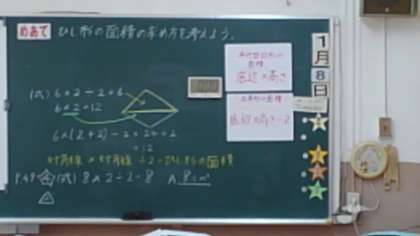 めあて ひし形の面積の求め方を考えよう。
(式) 6×2÷2=6
6×2=12
6×(2+2)÷2=24÷2
=12
対角線×対角線÷2=ひし形の面積
(式) 8×2÷2=8
A. 8cm²
平行四辺形の
面積
底辺×高さ
三角形の面積
底辺×高さ÷2
1
月
8
日